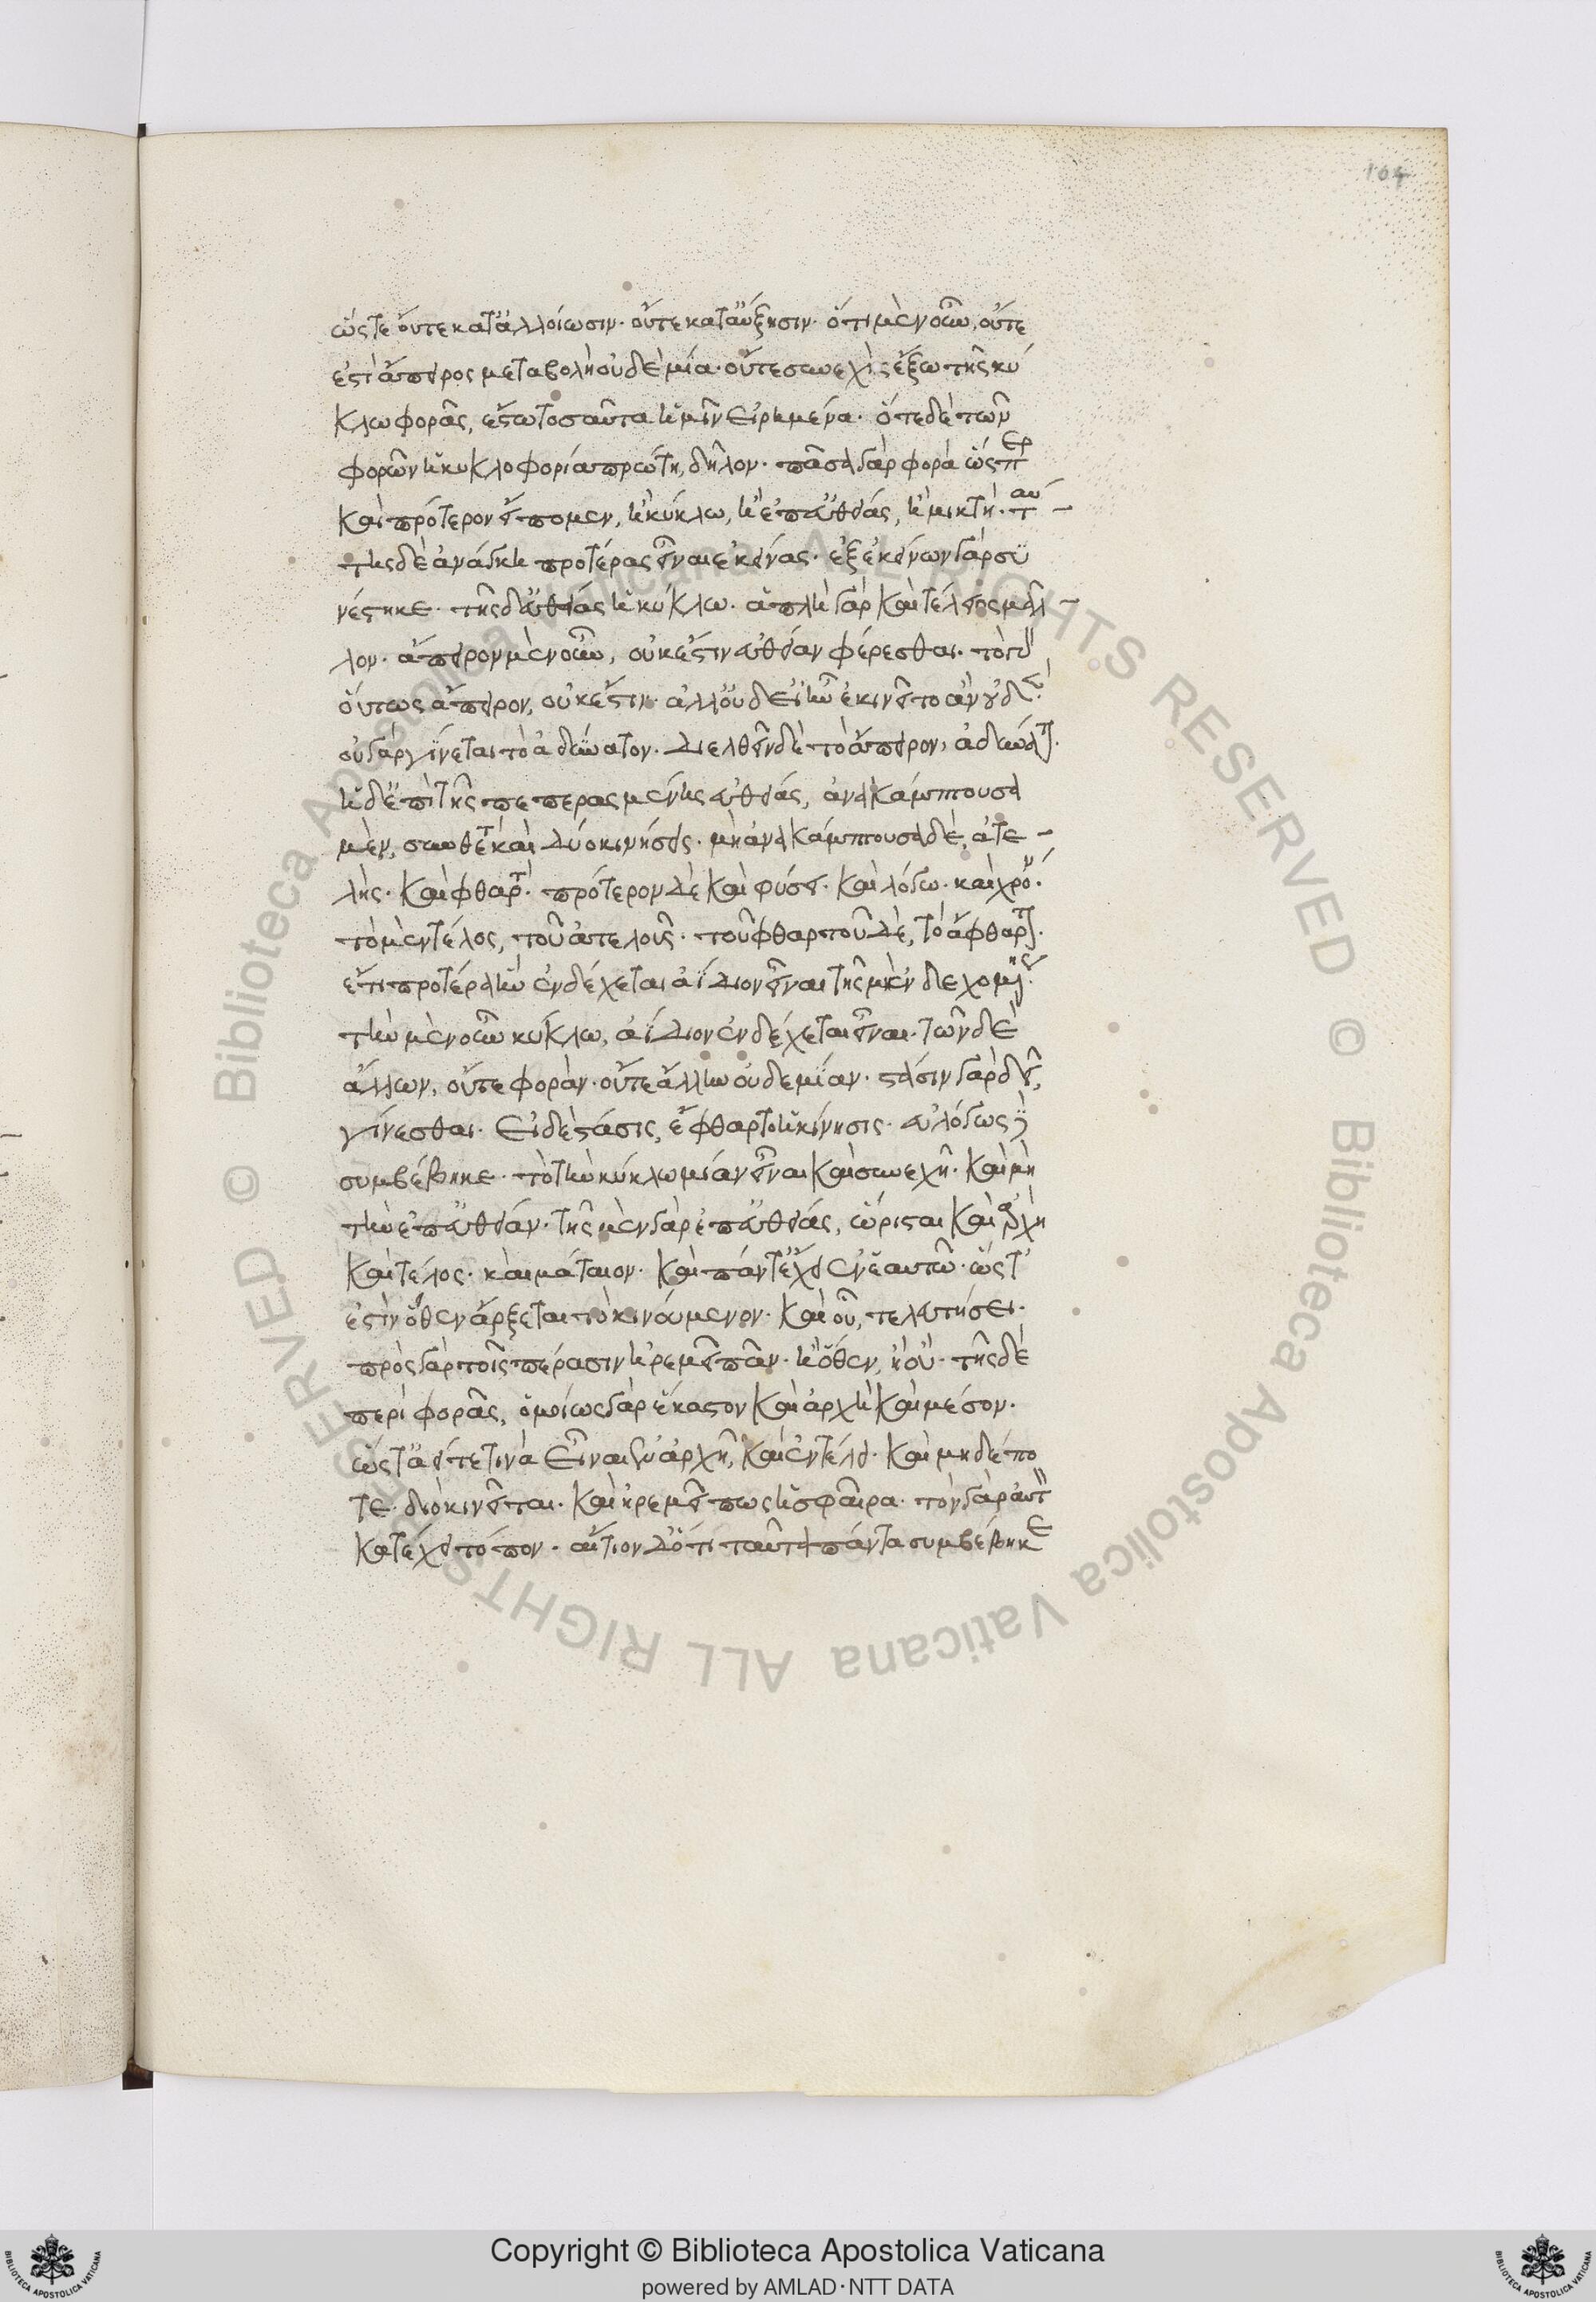 104
ὥστε οὔτε κατ' ἀλλοίωσιν· οὔτε κατ' αὔξησιν· ὅτι μὲν οὖν, οὔτε
ἐστὶ ἄπειρος μεταβολὴ οὐδὲ μία· οὔτε συνεχὴς ἔξω τῆς κύ
κλω φορᾶς, ἔστω τοσαῦτα ἡμῖν εἰρημένα· ὅτι δὲ τῶν
φορῶν ἡ κυκλοφορία πρώτη, δῆλον· πᾶσα γὰρ φορὰ ὥσπερ
καὶ πρότερον εἴπομεν, ἢ κύκλω, ἢ ἐπ' εὐθείας, ἢ μικτή· ταύ
της δὲ ἀνάγκη προτέρας εἶναι ἐκείνας· ἐξ ἐκείνων γὰρ συ
νέστηκε· τῆς δ' εὐθείας ἡ κύκλω· ἁπλῆ γὰρ καὶ τέλειος μᾶλ
λον· ἄπειρον μὲν οὖν, οὐκ ἔστιν εὐθεῖαν φέρεσθαι· τὸ γ
οὕτως ἄπειρον, οὐκ ἔστιν· ἀλλ' οὐδ' εἰ ἦν ἐκινεῖτο ἂν οὐδ
οὐ γὰρ γίνεται τὸ ἀδύνατον· διελθεῖν δὲ τὸ ἄπειρον, ἀδύνατ
ἡ δ' ἐπὶ τῆς πεπερασμένης εὐθείας, ἀνακάμπτουσα
μὲν, συνθετ καὶ δύο κινήσεις· μὴ ἀνακάμπτουσα δὲ, ἀτε
λὴς· καὶ φθαρτ· πρότερον δὲ καὶ φύσει· καὶ λόγω· καὶ χρόν·
τὸ μὲν τέλος, τοῦ ἀτελοῦς· τοῦ φθαρτοῦ δὲ, τὸ ἄφθαρτ·
ἔτι προτέρα ἣν ἐνδέχεται ἀΐδιον εἶναι τῆς μὴ ἐνδεχομένης·
τὴν μὲν οὖν κύκλω, ἀΐδιον ἐνδέχεται εἶναι· τῶν δὲ
ἄλλων, οὔτε φορὰν· οὔτε ἄλλην οὐδεμίαν· στάσιν γὰρ δεῖ,
γίνεσθαι· εἰ δὲ στάσις, ἔφθαρτο ἡ κίνησις· εὐλόγως δὲ
συμβέβηκε· τὸ τὴν κύκλω μίαν εἶναι καὶ συνεχῆ· καὶ μὴ
τὴν ἐπ' εὐθείαν· τῆς μὲν γὰρ ἐπ' εὐθείας, ὥρισται καὶ ἀρχὴ
καὶ τέλος· καὶ μάταιον· καὶ πάντ' ἔχει ἐν ἑαυτῶ· ὥστ'
ἐστὶν ὅθεν ἄρξεται τὸ κινούμενον· καὶ οὗ, τελευτήσει·
πρὸς γὰρ τοῖς πέρασιν ἠρεμεῖ πᾶν· ἢ ὅθεν, ἢ οὗ· τῆς δὲ
περὶ φορᾶς, ὁμοίως γὰρ ἕκαστον καὶ ἀρχὴ καὶ μέσον·
ὥστ' ἀεί τε τινὰ εἶναι ἐν ἀρχῆ, καὶ ἐν τέλει· καὶ μηδέπο
τε· διὸ κινεῖται· καὶ ἠρεμεῖ πως ἡ σφαῖρα· τὸν γὰρ αὐτ
κατέχει τόπον· αἴτιον δ' ὅτι ταῦτα πάντα συμβέβηκε
Copyright © Biblioteca Apostolica Vaticana
powered by AMLAD·NTT DATA
Biblioteca Apostolica Vaticana ALL RIGHTS RESERVED ©
Biblioteca Apostolica Vaticana ALL RIGHTS RESERVED ©